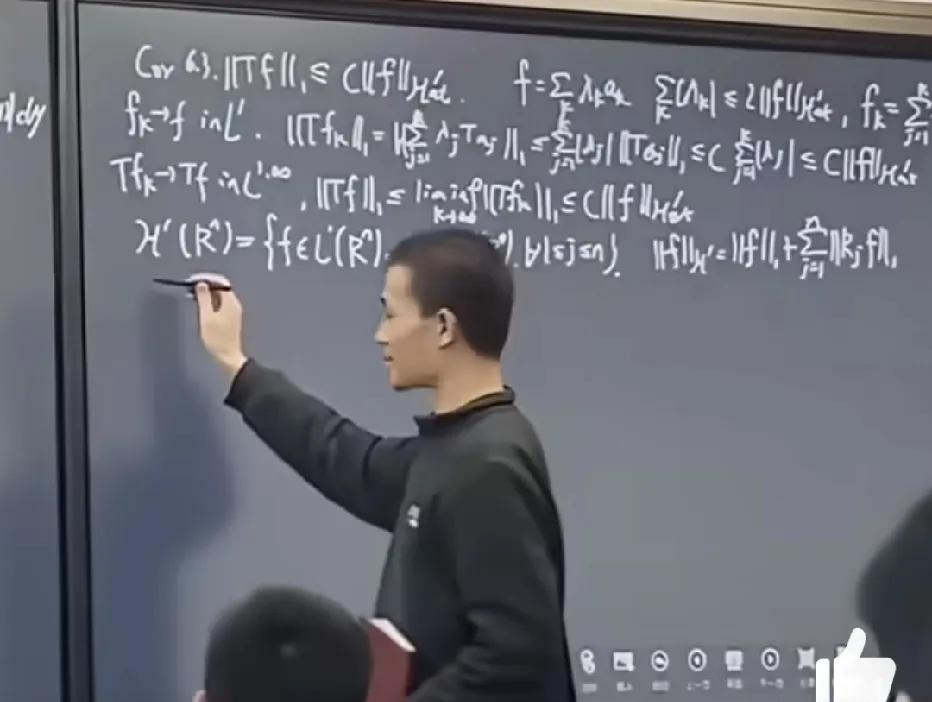 Cor 6.3. ||Tf||₁ ≤ C||f||_{H¹at}. f = Σ_k λ_k a_k Σ_k |λ_k| ≤ 2||f||_{H¹at}, f_k = Σ_{j=1}^k
dy f_k → f in L¹. ||Tf_k||₁ = ||Σ_{j=1}^k λ_j Ta_j||₁ ≤ Σ_{j=1}^k |λ_j| ||Ta_j||₁ ≤ C Σ_{j=1}^k |λ_j| ≤ C||f||_{H¹at}
Tf_k → Tf in L^{1,∞}, ||Tf||₁ ≤ lim inf_{k→∞} ||Tf_k||₁ ≤ C||f||_{H¹at}
H¹(Rⁿ) = {f ∈ L¹(Rⁿ) ∀1≤j≤n}. ||f||_{H¹} = ||f||₁ + Σ_{j=1}^n ||R_j f||₁